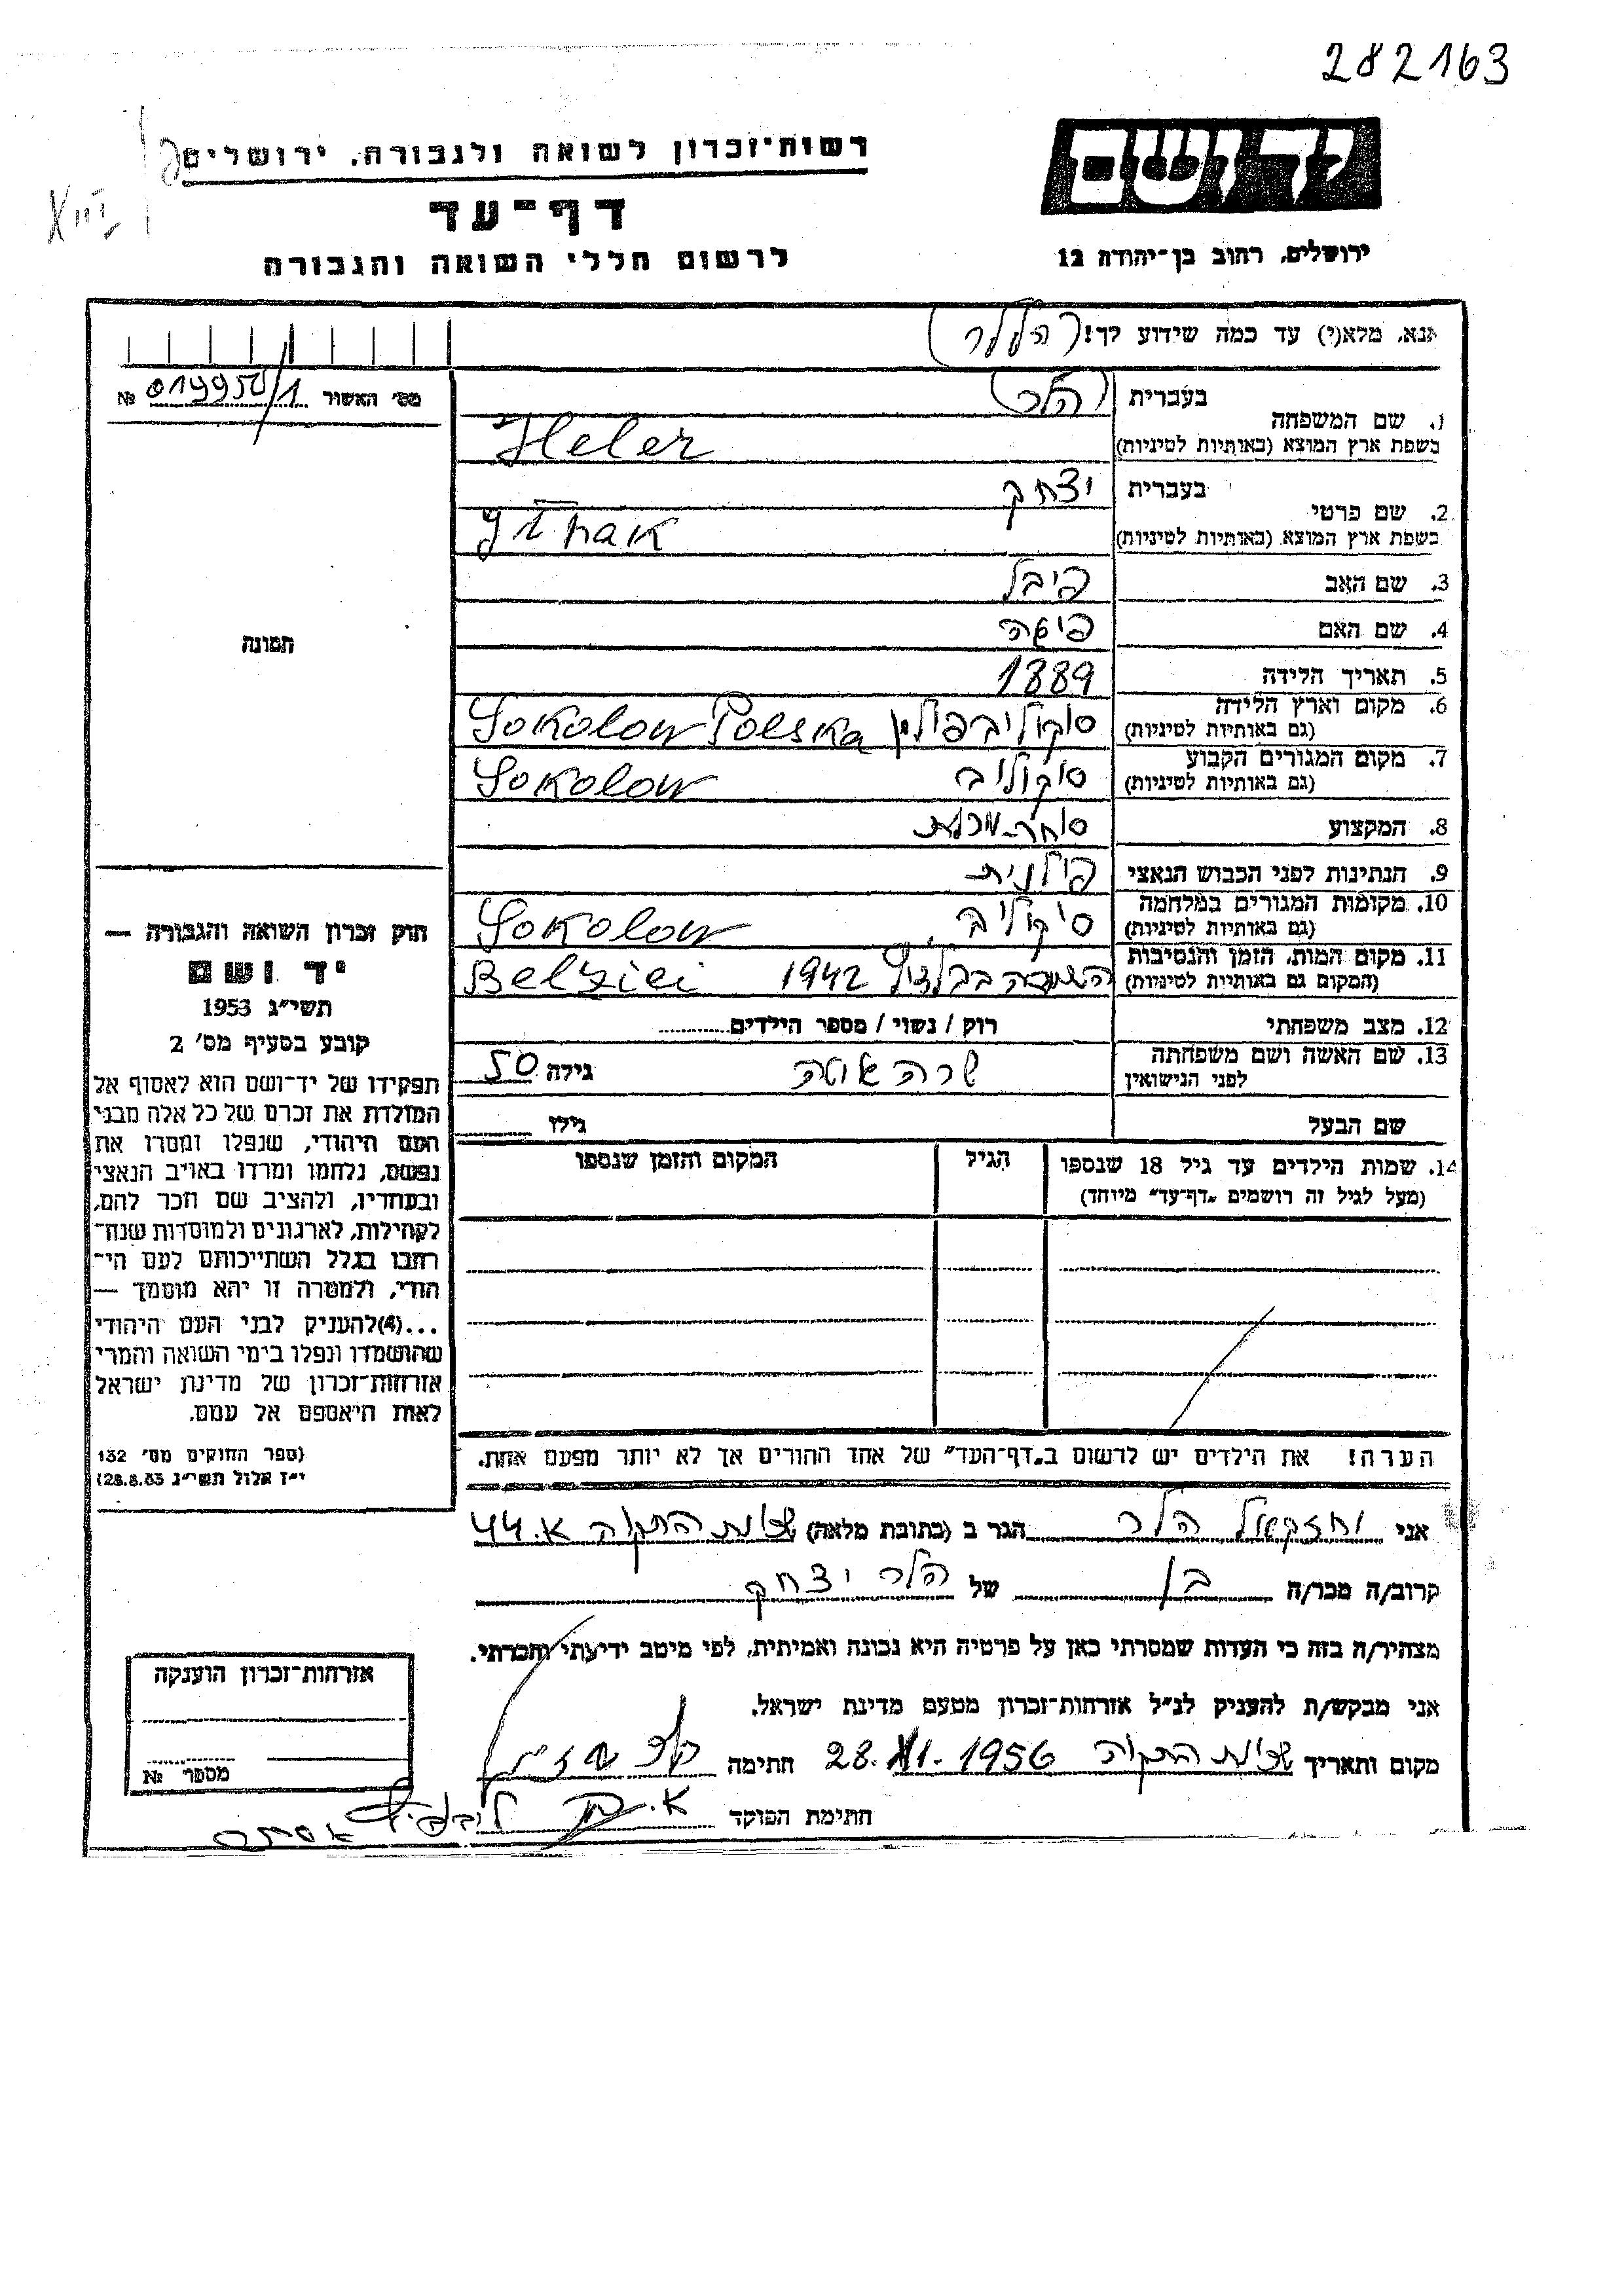 282163
יד ושם
רשות־זכרון לשואה ולגבורה, ירושלים
דף־עד
לרשום חללי השואה והגבורה
ירושלים, רחוב בן־יהודה 12
אנא, מלא(י) עד כמה שידוע לך! (הללר)
מס׳ האשור № 019950/1
תמונה
1. שם המשפחה
בעברית (הלר)
בשפת ארץ המוצא (באותיות לטיניות) Heler
2. שם פרטי
בעברית יצחק
בשפת ארץ המוצא (באותיות לטיניות)
3. שם האב פיבל
4. שם האם
5. תאריך הלידה 1889
6. מקום וארץ הלידה
(גם באותיות לטיניות) סוקוליב פולין Sokolow Polska
7. מקום המגורים הקבוע
(גם באותיות לטיניות) סוקוליב Sokolow
8. המקצוע סוחר-מכולת
9. הנתינות לפני הכבוש הנאצי פולנית
10. מקומות המגורים במלחמה
(גם באותיות לטיניות) סוקוליב, Sokolow
11. מקום המות, הזמן והנסיבות
(המקום גם באותיות לטיניות) 1942
12. מצב משפחתי רוק / נשוי / מספר הילדים
13. שם האשה ושם משפחתה
לפני הנישואין שרה גילה 50
שם הבעל גילו
14. שמות הילדים עד גיל 18 שנספו הגיל המקום והזמן שנספו
(מעל לגיל זה רושמים „דף־עד״ מיוחד)
הערה! את הילדים יש לרשום ב„דף־העד״ של אחד ההורים אך לא יותר מפעם אחת.
חוק זכרון השואה והגבורה —
יד ושם
תשי״ג 1953
קובע בסעיף מס׳ 2
תפקידו של יד־ושם הוא לאסוף אל
המולדת את זכרם של כל אלה מבני
העם היהודי, שנפלו ומסרו את
נפשם, נלחמו ומרדו באויב הנאצי
ובעוזריו, ולהציב שם וזכר להם,
לקהילות, לארגונים ולמוסדות שנח־
רבו בגלל השתייכותם לעם הי־
הודי, ולמטרה זו יהא מוסמך —
...(4)להעניק לבני העם היהודי
שהושמדו ונפלו בימי השואה והמרי
אזרחות־זכרון של מדינת ישראל
לאות היאספם אל עמם.
(ספר החוקים מס׳ 132
י״ז אלול תשי״ג 28.8.53)
אני יחזקאל הלר הגר ב (כתובת מלאה) שכונת התקוה א. 44
קרוב/ה מכר/ה בן של הלר יצחק
מצהיר/ה בזה כי העדות שמסרתי כאן על פרטיה היא נכונה ואמיתית, לפי מיטב ידיעתי והכרתי.
אני מבקש/ת להעניק לנ״ל אזרחות־זכרון מטעם מדינת ישראל.
מקום ותאריך שכונת התקוה 28. XI. 1956 חתימה
חתימת הפוקד
אזרחות־זכרון הוענקה
מספר №